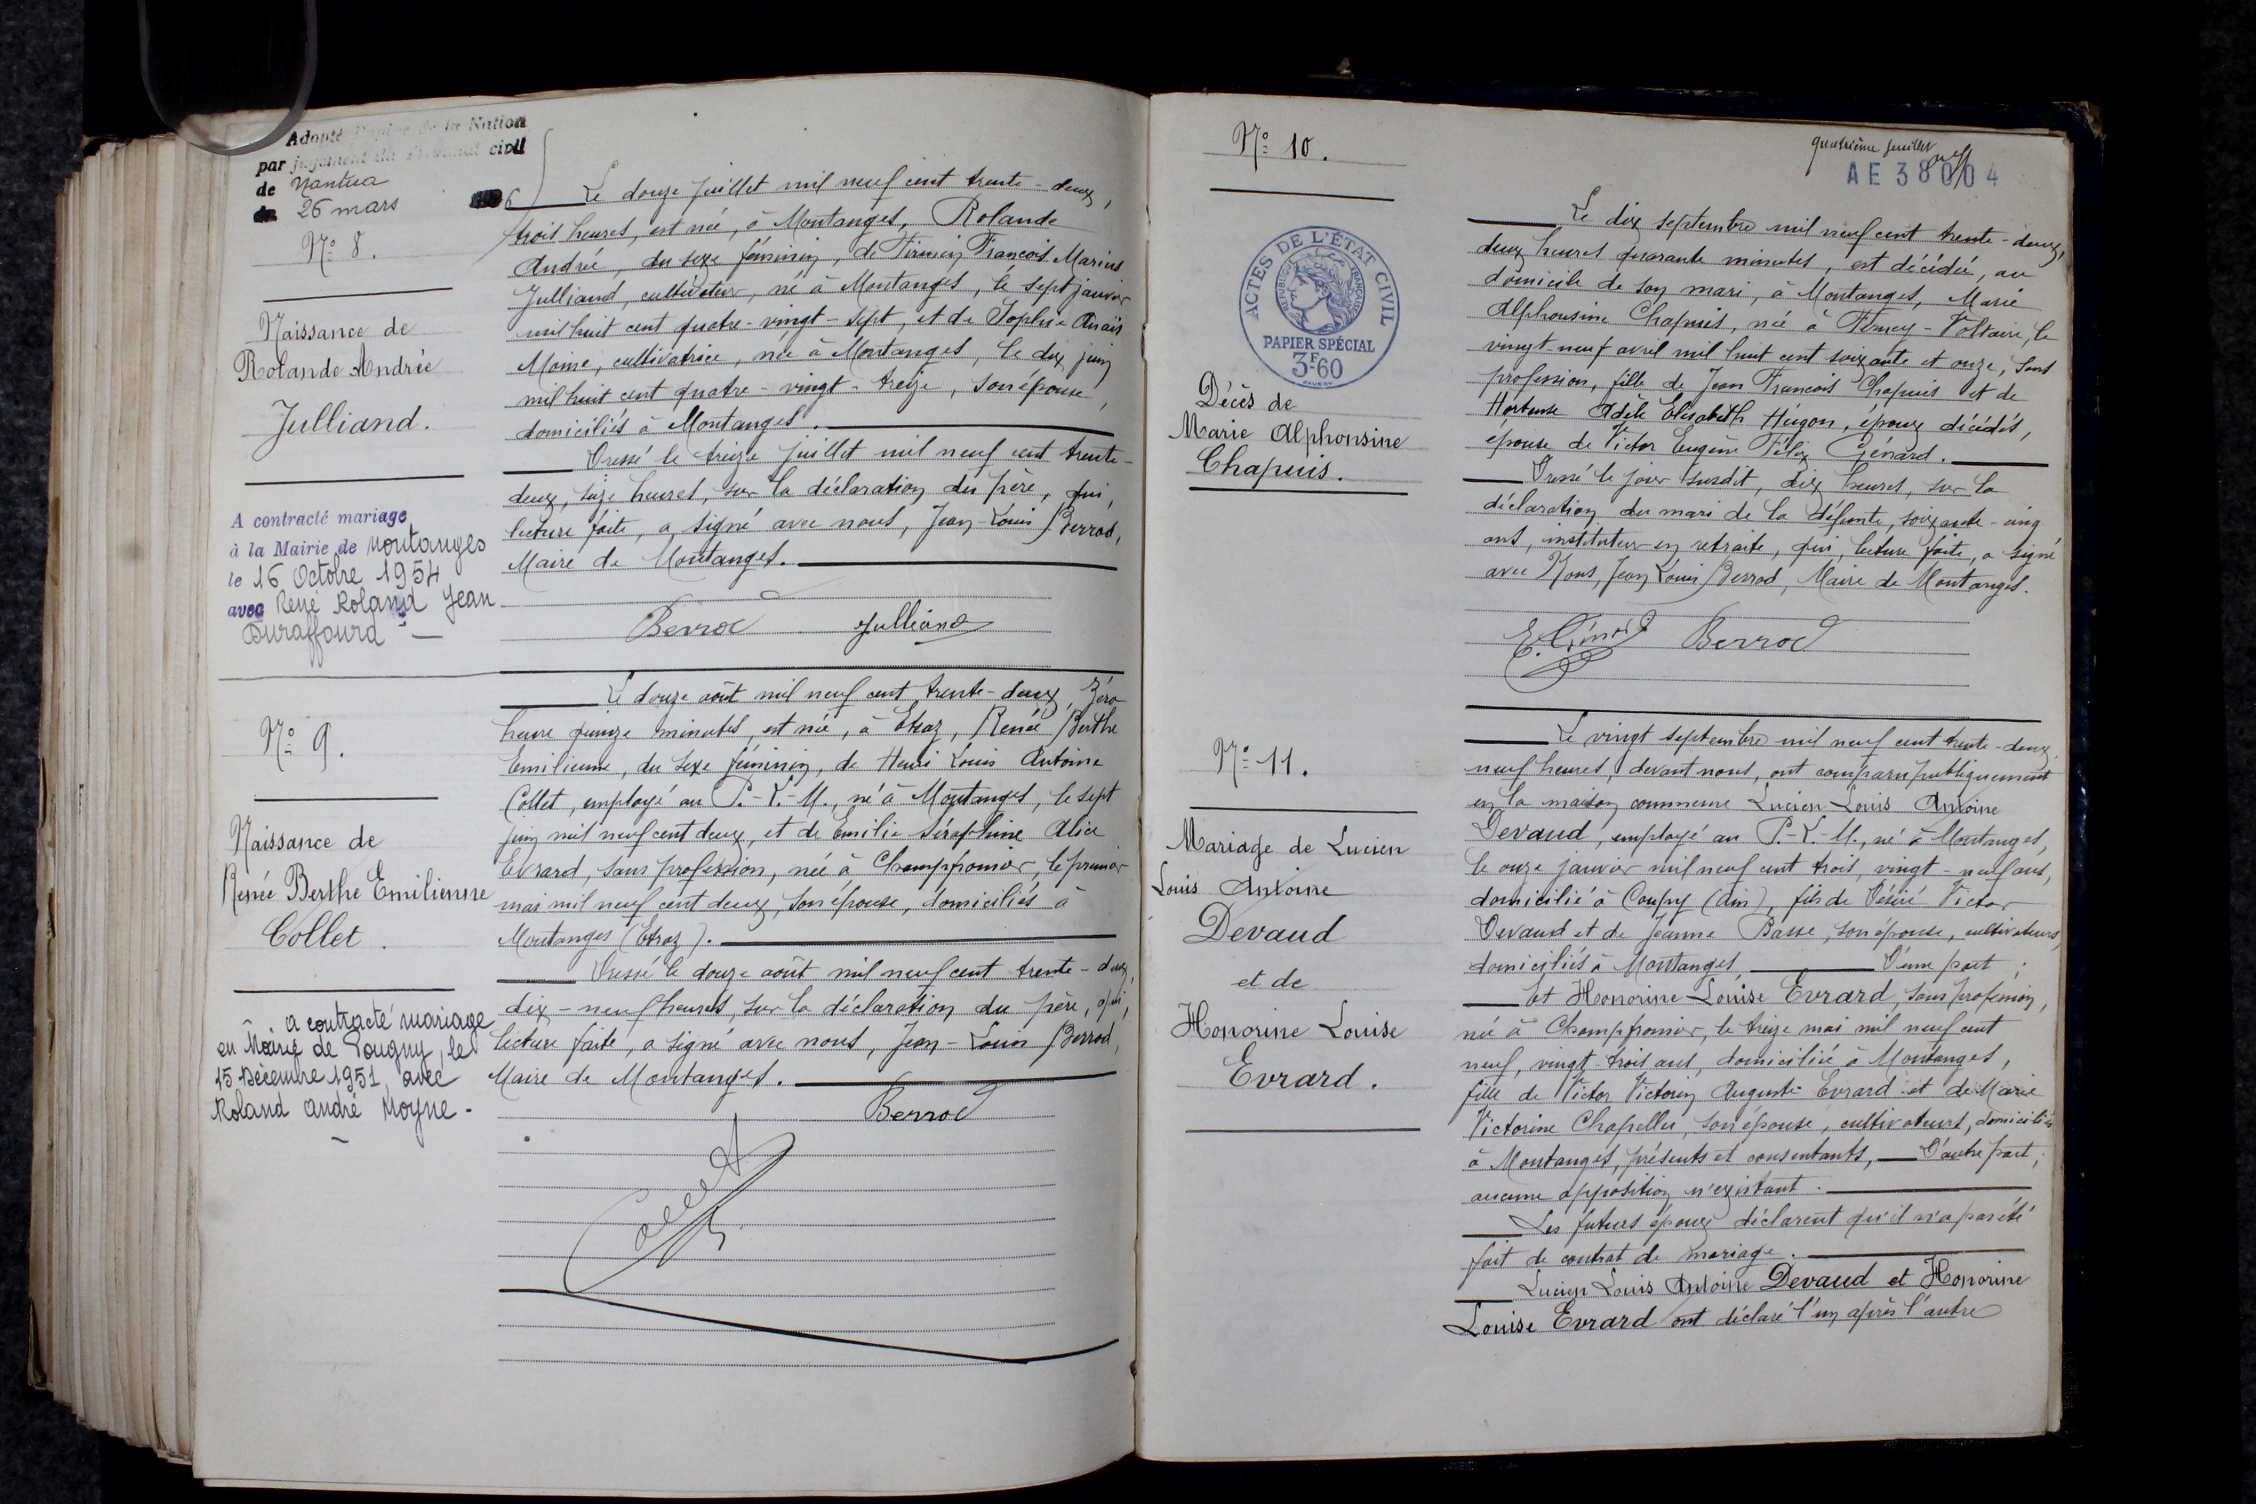 Adopté Pupille de la Nation
par jugement du Tribunal civil
de Nantua
du 26 mars
N° 8.
Naissance de
Rolande Andrée
Julliand.
A contracté mariage
à la Mairie de Montanges
le 16 Octobre 1954
avec René Roland Jean
Duraffourd
Le douze juillet mil neuf cent trente-deux,
trois heures, est née, à Montanges, Rolande
Andrée, du sexe féminin, de Firmin François Marius
Julliand, cultivateur, né à Montanges, le sept janvier
mil huit cent quatre-vingt-sept, et de Sophie Anaïs
Moine, cultivatrice, née à Montanges, le dix juin
mil huit cent quatre-vingt-treize, son épouse,
domiciliés à Montanges.
Dressé le treize juillet mil neuf cent trente-
deux, seize heures, sur la déclaration du père, qui,
lecture faite, a signé avec nous, Jean-Louis Berrod,
Maire de Montanges.
Berrod Julliand
N° 9.
Naissance de
Renée Berthe Emilienne
Collet.
a contracté mariage
en Mairie de Pougny, le
15 Décembre 1951, avec
Roland André Moyne.
Le douze août mil neuf cent trente-deux, zéro
heure quinze minutes, est née, à Etraz, Renée Berthe
Emilienne, du sexe féminin, de Henri Louis Antoine
Collet, employé au P.-L.-M., né à Montanges, le sept
juin mil neuf cent deux, et de Emilie Séraphine Alice
Evrard, sans profession, née à Champfromier, le premier
mai mil neuf cent deux, son épouse, domiciliés à
Montanges (Etraz).
Dressé le douze août mil neuf cent trente-deux,
dix-neuf heures, sur la déclaration du père, qui,
lecture faite, a signé avec nous, Jean-Louis Berrod,
Maire de Montanges.
Berrod
Collet
quatrième feuillet
AE 38004
N° 10.
ACTES DE L'ÉTAT CIVIL
RÉPUBLIQUE FRANÇAISE
PAPIER SPÉCIAL
3F.60
Décès de
Marie Alphonsine
Chapuis.
Le dix septembre mil neuf cent trente-deux,
deux heures quarante minutes, est décédée, au
domicile de son mari, à Montanges, Marie
Alphonsine Chapuis, née à Ferney-Voltaire, le
vingt-neuf avril mil huit cent soixante et onze, sans
profession, fille de Jean François Chapuis et de
Hortense Adèle Elisabeth Hugon, époux décédés,
épouse de Victor Eugène Félix Génard.
Dressé le jour susdit, dix heures, sur la
déclaration du mari de la défunte, soixante-cinq
ans, instituteur en retraite, qui, lecture faite, a signé
avec Nous, Jean Louis Berrod, Maire de Montanges.
E. Génard Berrod
N° 11.
Mariage de Lucien
Louis Antoine
Devaud
et de
Honorine Louise
Evrard.
Le vingt septembre mil neuf cent trente-deux,
neuf heures, devant nous, ont comparu publiquement
en la maison commune Lucien Louis Antoine
Devaud, employé au P.-L.-M., né à Montanges,
le onze janvier mil neuf cent trois, vingt-neuf ans,
domicilié à Coupy (Ain), fils de Désiré Victor
Devaud et de Jeanne Basse, son épouse, cultivateurs,
domiciliés à Montanges, D'une part;
Et Honorine Louise Evrard, sans profession,
née à Champfromier, le treize mai mil neuf cent
neuf, vingt-trois ans, domiciliée à Montanges,
fille de Victor Victorin Auguste Evrard et de Marie
Victorine Chapellu, son épouse, cultivateurs, domiciliés
à Montanges, présents et consentants, D'autre part;
aucune opposition n'existant.
Les futurs époux déclarent qu'il n'a pas été
fait de contrat de mariage.
Lucien Louis Antoine Devaud et Honorine
Louise Evrard ont déclaré l'un après l'autre